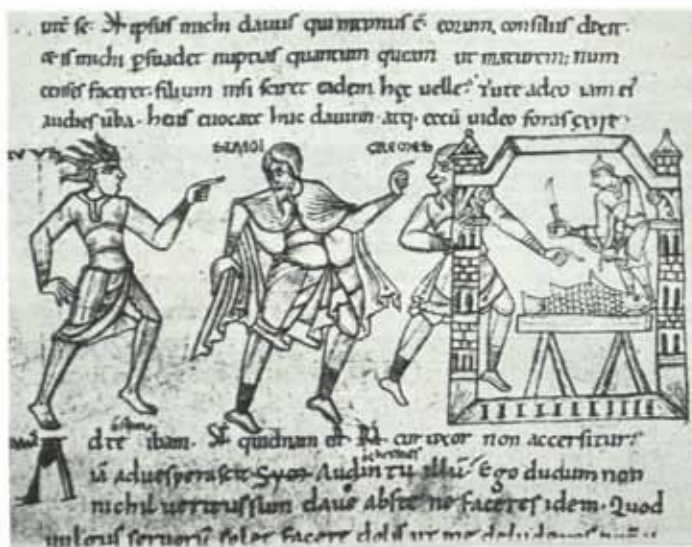 ipsus michi davus qui intimus ē eorum consiliis dixit·
& is michi psuadet nuptias quantum queam ut maturem; num
censes faceret· filium nisi sciret eadem hęc uelle? Tute adeo iam ei'
audies uerba· heus euocate huc dauum· atq; eccū uideo foras exire·
SIMO CREMES
d te ibam· SI quidnam est DA cur uxor non accersitur
iā aduesperascit Symo Audin tu illū? Ego dudum non
nichil ueritus sum daue abs te ne faceres idem· Quod
uulgus seruorū solet facere dolis ut me